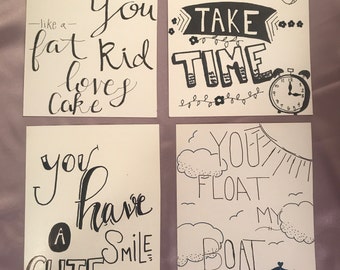 You
like a
fat Kid
loves
cake
TAKE
TIME
you
have
A
SMILE
CUTE
YOU
FLOAT
MY
BOAT